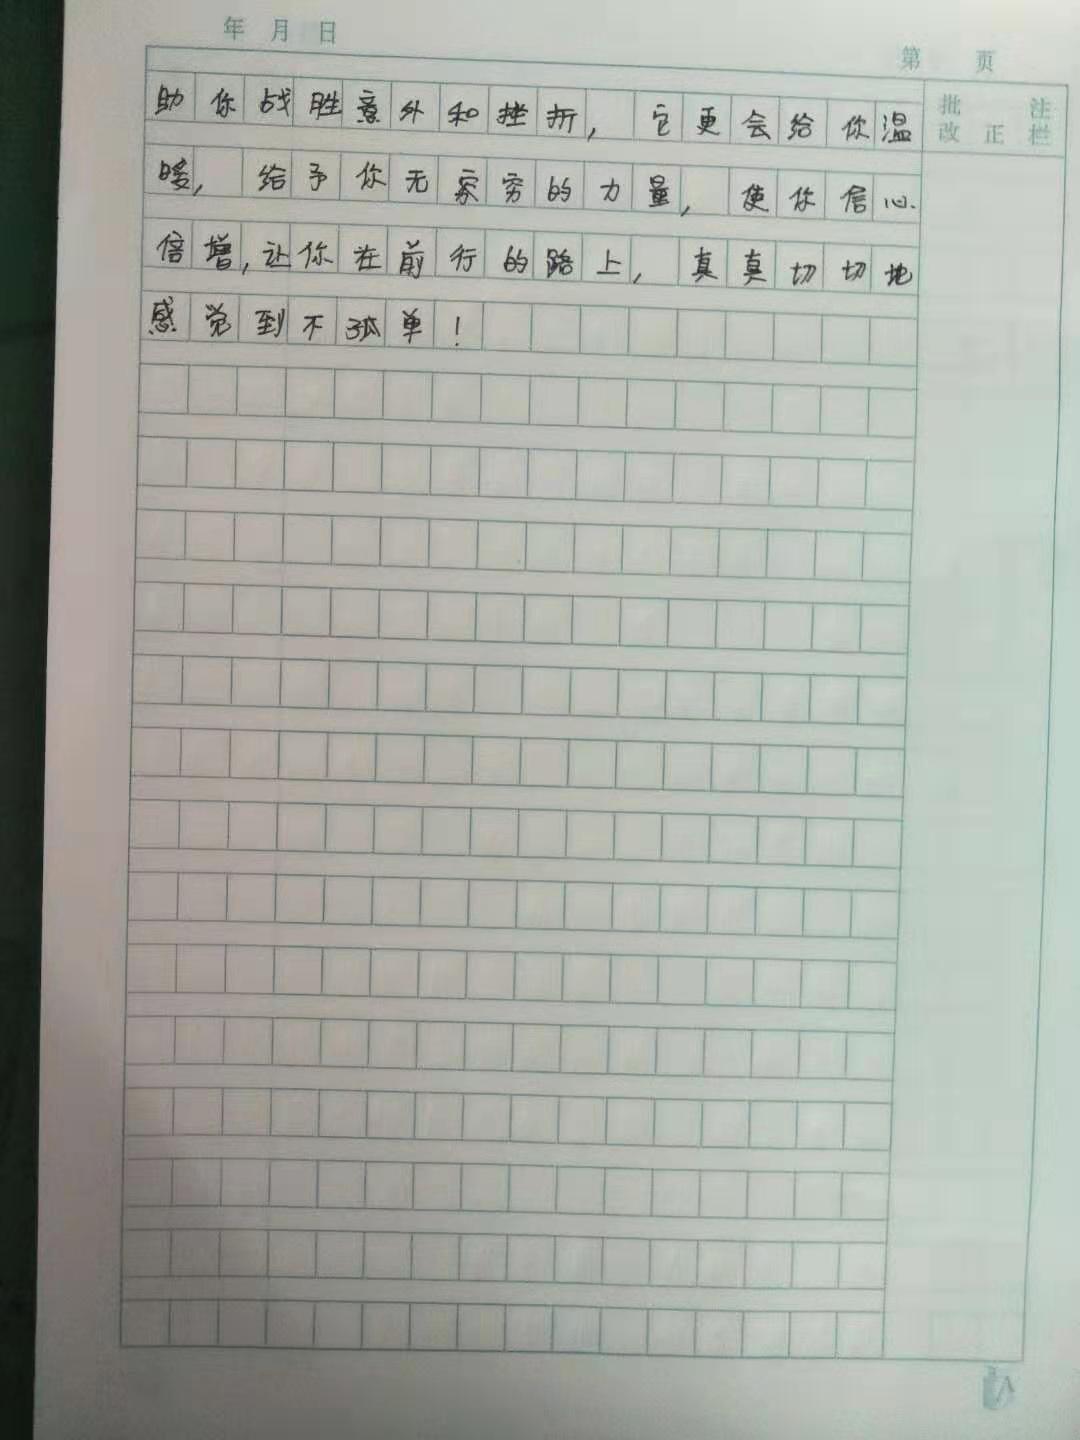 年 月 日
第 页
批 注
改 正 栏
助你战胜意外和挫折，它更会给你温
暖，给予你无穷的力量，使你信心
倍增，让你在前行的路上，真真切切地
感觉到不孤单！